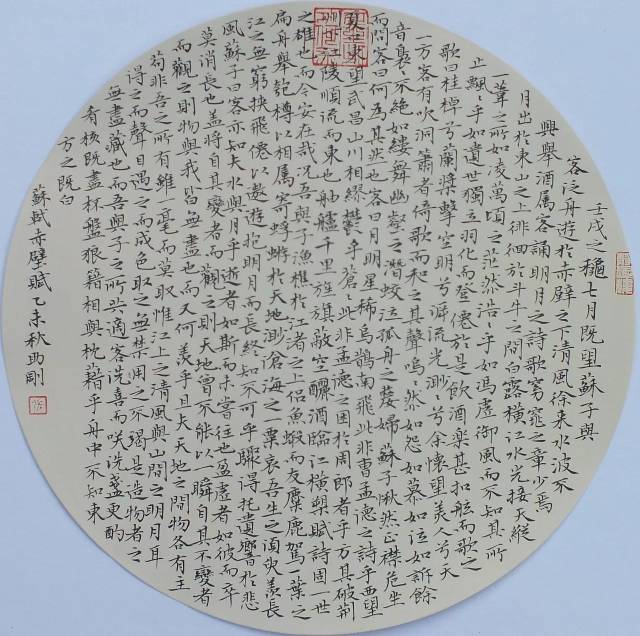 壬戌之穐七月既望蘇子與
客泛舟遊於赤壁之下清風徐来水波不
興舉酒属客誦明月之詩歌窈窕之章少焉
月出於東山之上徘徊於斗牛之間白露横江水光接天縱
一葦之所如凌萬頃之茫然浩〻乎如馮虚御風而不知其所
止飄〻乎如遺世獨立羽化而登僊於是飲酒樂甚扣舷而歌之
歌曰桂棹兮蘭槳擊空明兮泝流光渺〻兮余懷望美人兮天
一方客有吹洞簫者倚歌而和之其聲嗚〻然如怨如慕如泣如訴餘
音裊〻不絶如縷舞幽壑之潛蛟泣孤舟之嫠婦蘇子愀然正襟危坐
而問客曰何為其然也客曰月明星稀烏鵲南飛此非曹孟德之詩乎西望
夏口東望武昌山川相繆鬱乎蒼〻此非孟德之困於周郎者乎方其破荆
州下江陵順流而東也舳艫千里旌旗蔽空釃酒臨江横槊賦詩固一世
之雄也而今安在哉况吾與子漁樵於江渚之上侶魚蝦而友麋鹿駕一葉之
扁舟舉匏樽以相属寄蜉蝣於天地渺滄海之一粟哀吾生之須臾羨長
江之無窮挾飛僊以遨遊抱明月而長終知不可乎驟得托遺響於悲
風蘇子曰客亦知夫水與月乎逝者如斯而未嘗往也盈虚者如彼而卒
莫消長也盖將自其變者而觀之則天地曾不能以一瞬自其不變者
而觀之則物與我皆無盡也而又何羨乎且夫天地之間物各有主
苟非吾之所有雖一毫而莫取惟江上之清風與山間之明月耳
得之而聲目遇之而成色取之無禁用之不竭是造物者之
無盡藏也而吾與子之所共適客洗喜而咲洗盞更酌
肴核既盡杯盤狼籍相與枕藉乎舟中不知東
方之既白
蘇軾赤壁賦乙未秋助剛